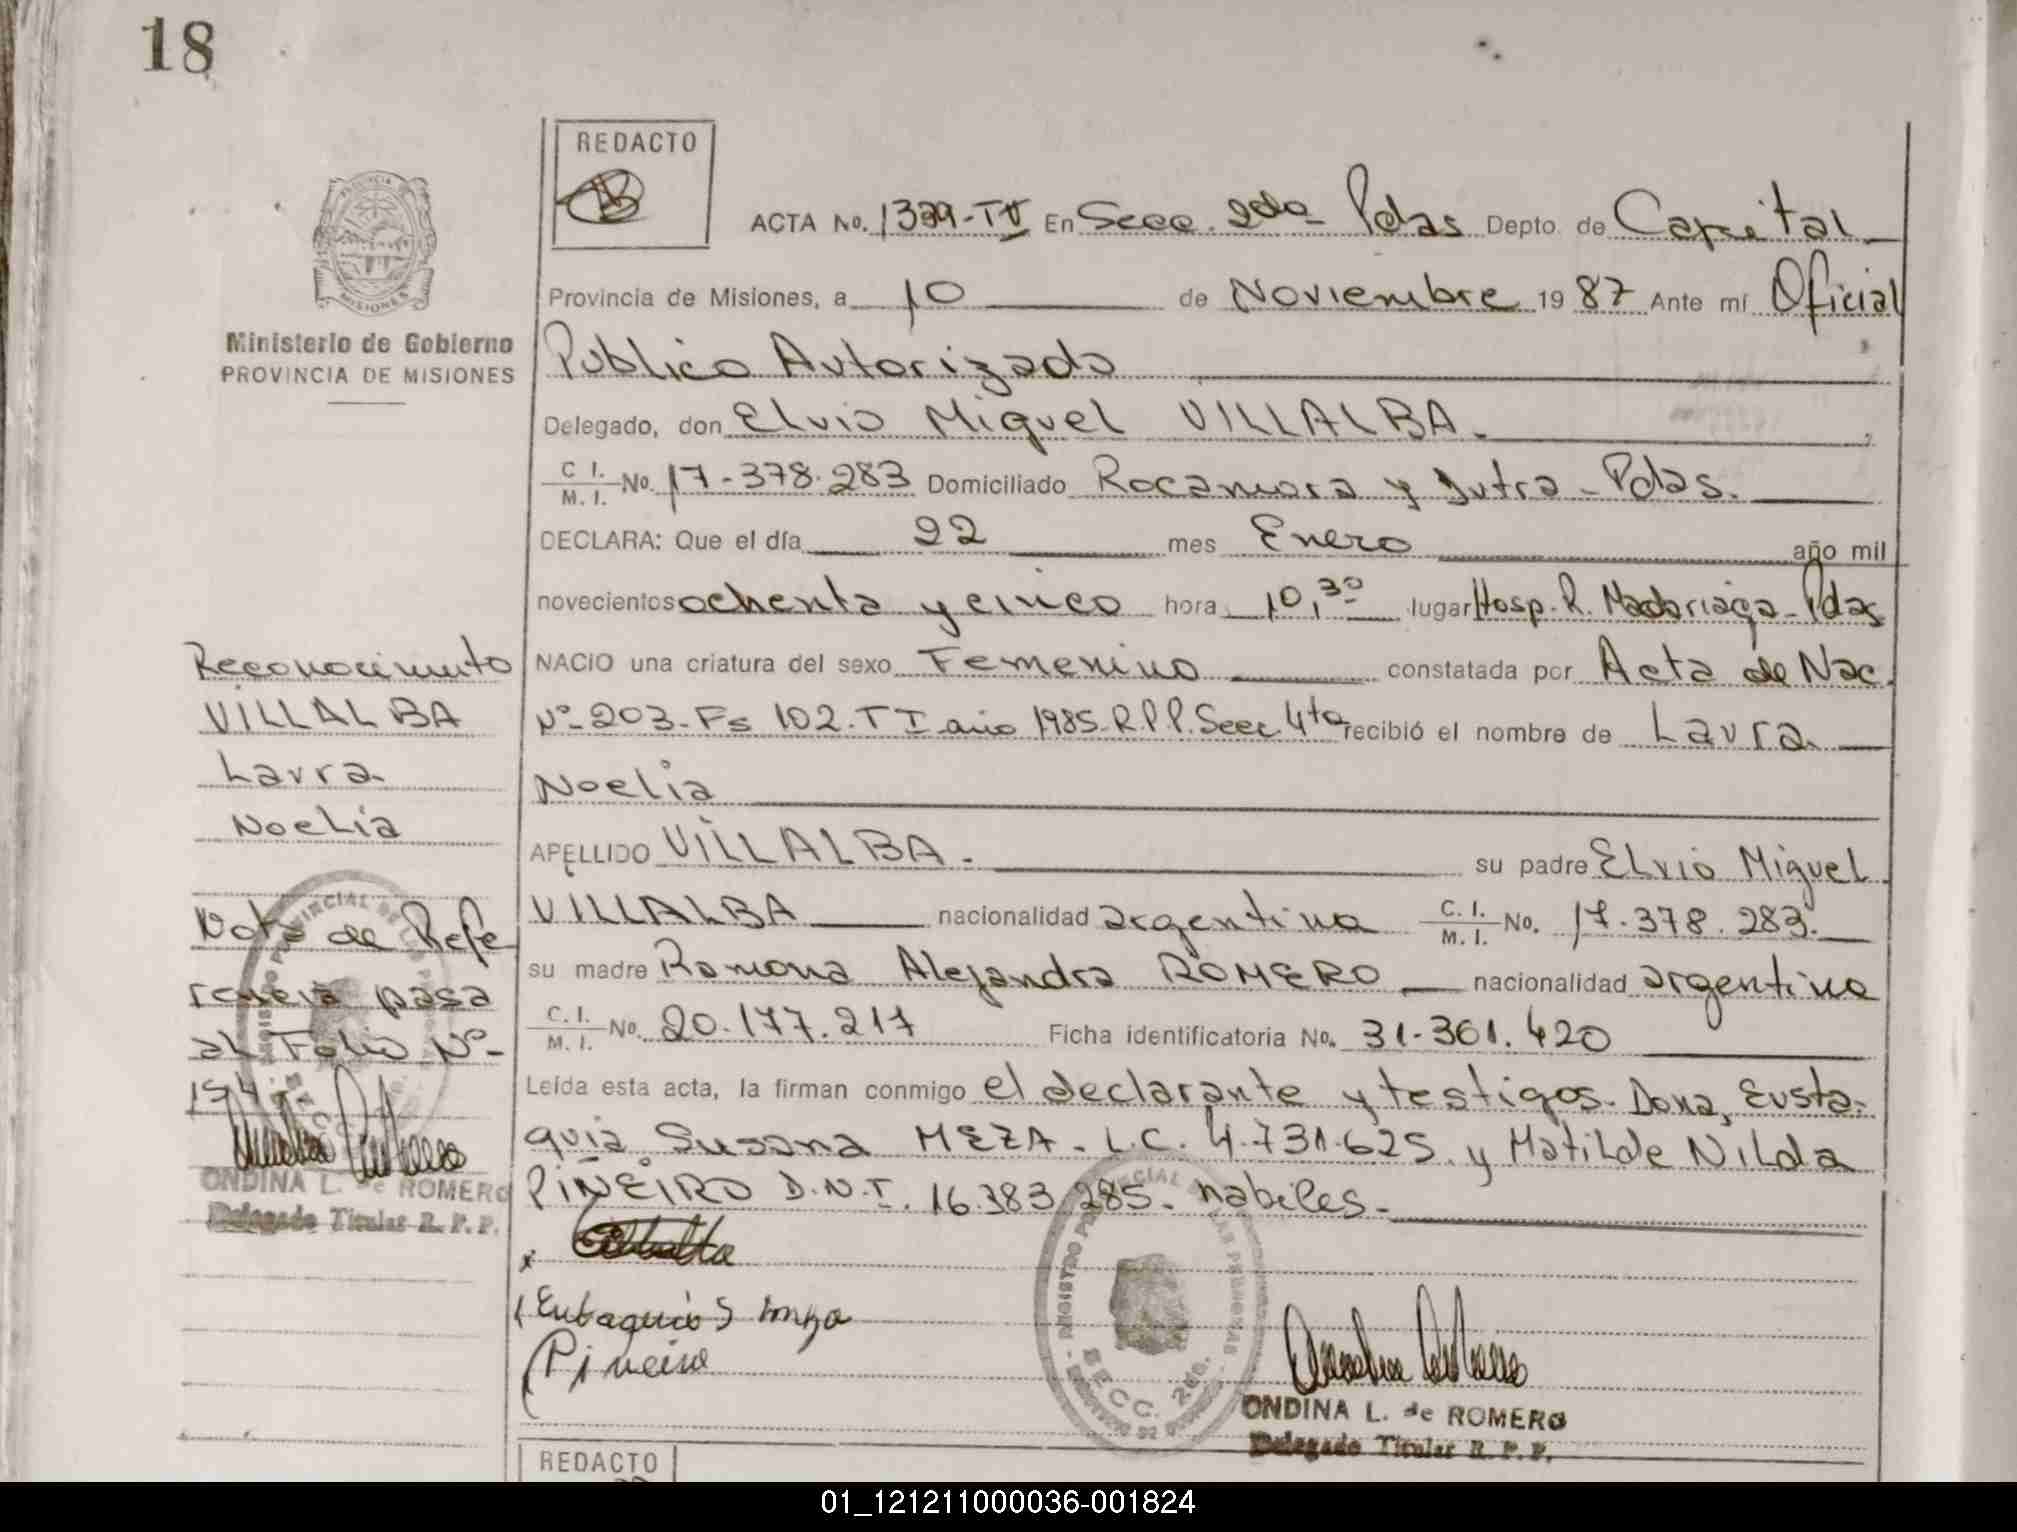 18
REDACTO
ACTA No. 1339-TV En Secc. 2da Pdas Depto. de Capital
Provincia de Misiones, a 10 de Noviembre 1987 Ante mí Oficial
Ministerio de Gobierno
PROVINCIA DE MISIONES
Publico Autorizado
Delegado, don Elvio Miguel VILLALBA.
C. I. / M. I. No. 17-378.283 Domiciliado Rocamora y Jutra - Pdas.
DECLARA: Que el día 22 mes Enero año mil
novecientos ochenta y cinco hora 10,30 lugar Hosp. R. Madariaga - Pdas
NACIO una criatura del sexo Femenino constatada por Acta de Nac.
Nº 203 - Fs 102. T I año 1985 - R.P.P. Secc 4ta recibió el nombre de Laura
Noelia
APELLIDO VILLALBA. su padre Elvio Miguel
VILLALBA nacionalidad argentina C. I. / M. I. No. 17.378.283.
su madre Ramona Alejandra ROMERO nacionalidad argentina
C. I. / M. I. No. 20.177.217 Ficha identificatoria No. 31-361.420
Leída esta acta, la firman conmigo el declarante y testigos. Dona, Eusta-
quia Susana MEZA. L.C. 4.731.625. y Matilde Nilda
PIÑEIRO D.N.I. 16.383.285. habiles.
Reconocimiento
VILLALBA
Laura
Noelia
Nota de Refe
rencia pasa
al Folio Nº
194
ONDINA L. de ROMERO
Delegado Titular R. P. P.
x
Eustaquia S Meza
Piñeiro
REGISTRO PROVINCIAL DE LAS PERSONAS
SECC. 2da.
ONDINA L. de ROMERO
Delegado Titular R. P. P.
REDACTO
01_121211000036-001824